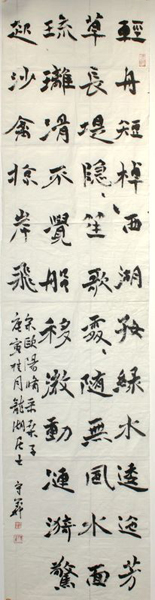 輕舟短棹西湖好綠水逶迤芳
草長堤隱〻笙歌處〻随無風水面
琉璃滑不覺船移微動漣漪驚
起沙禽掠岸飛
宋歐陽脩采桑子
庚寅桂月龍湖居士守